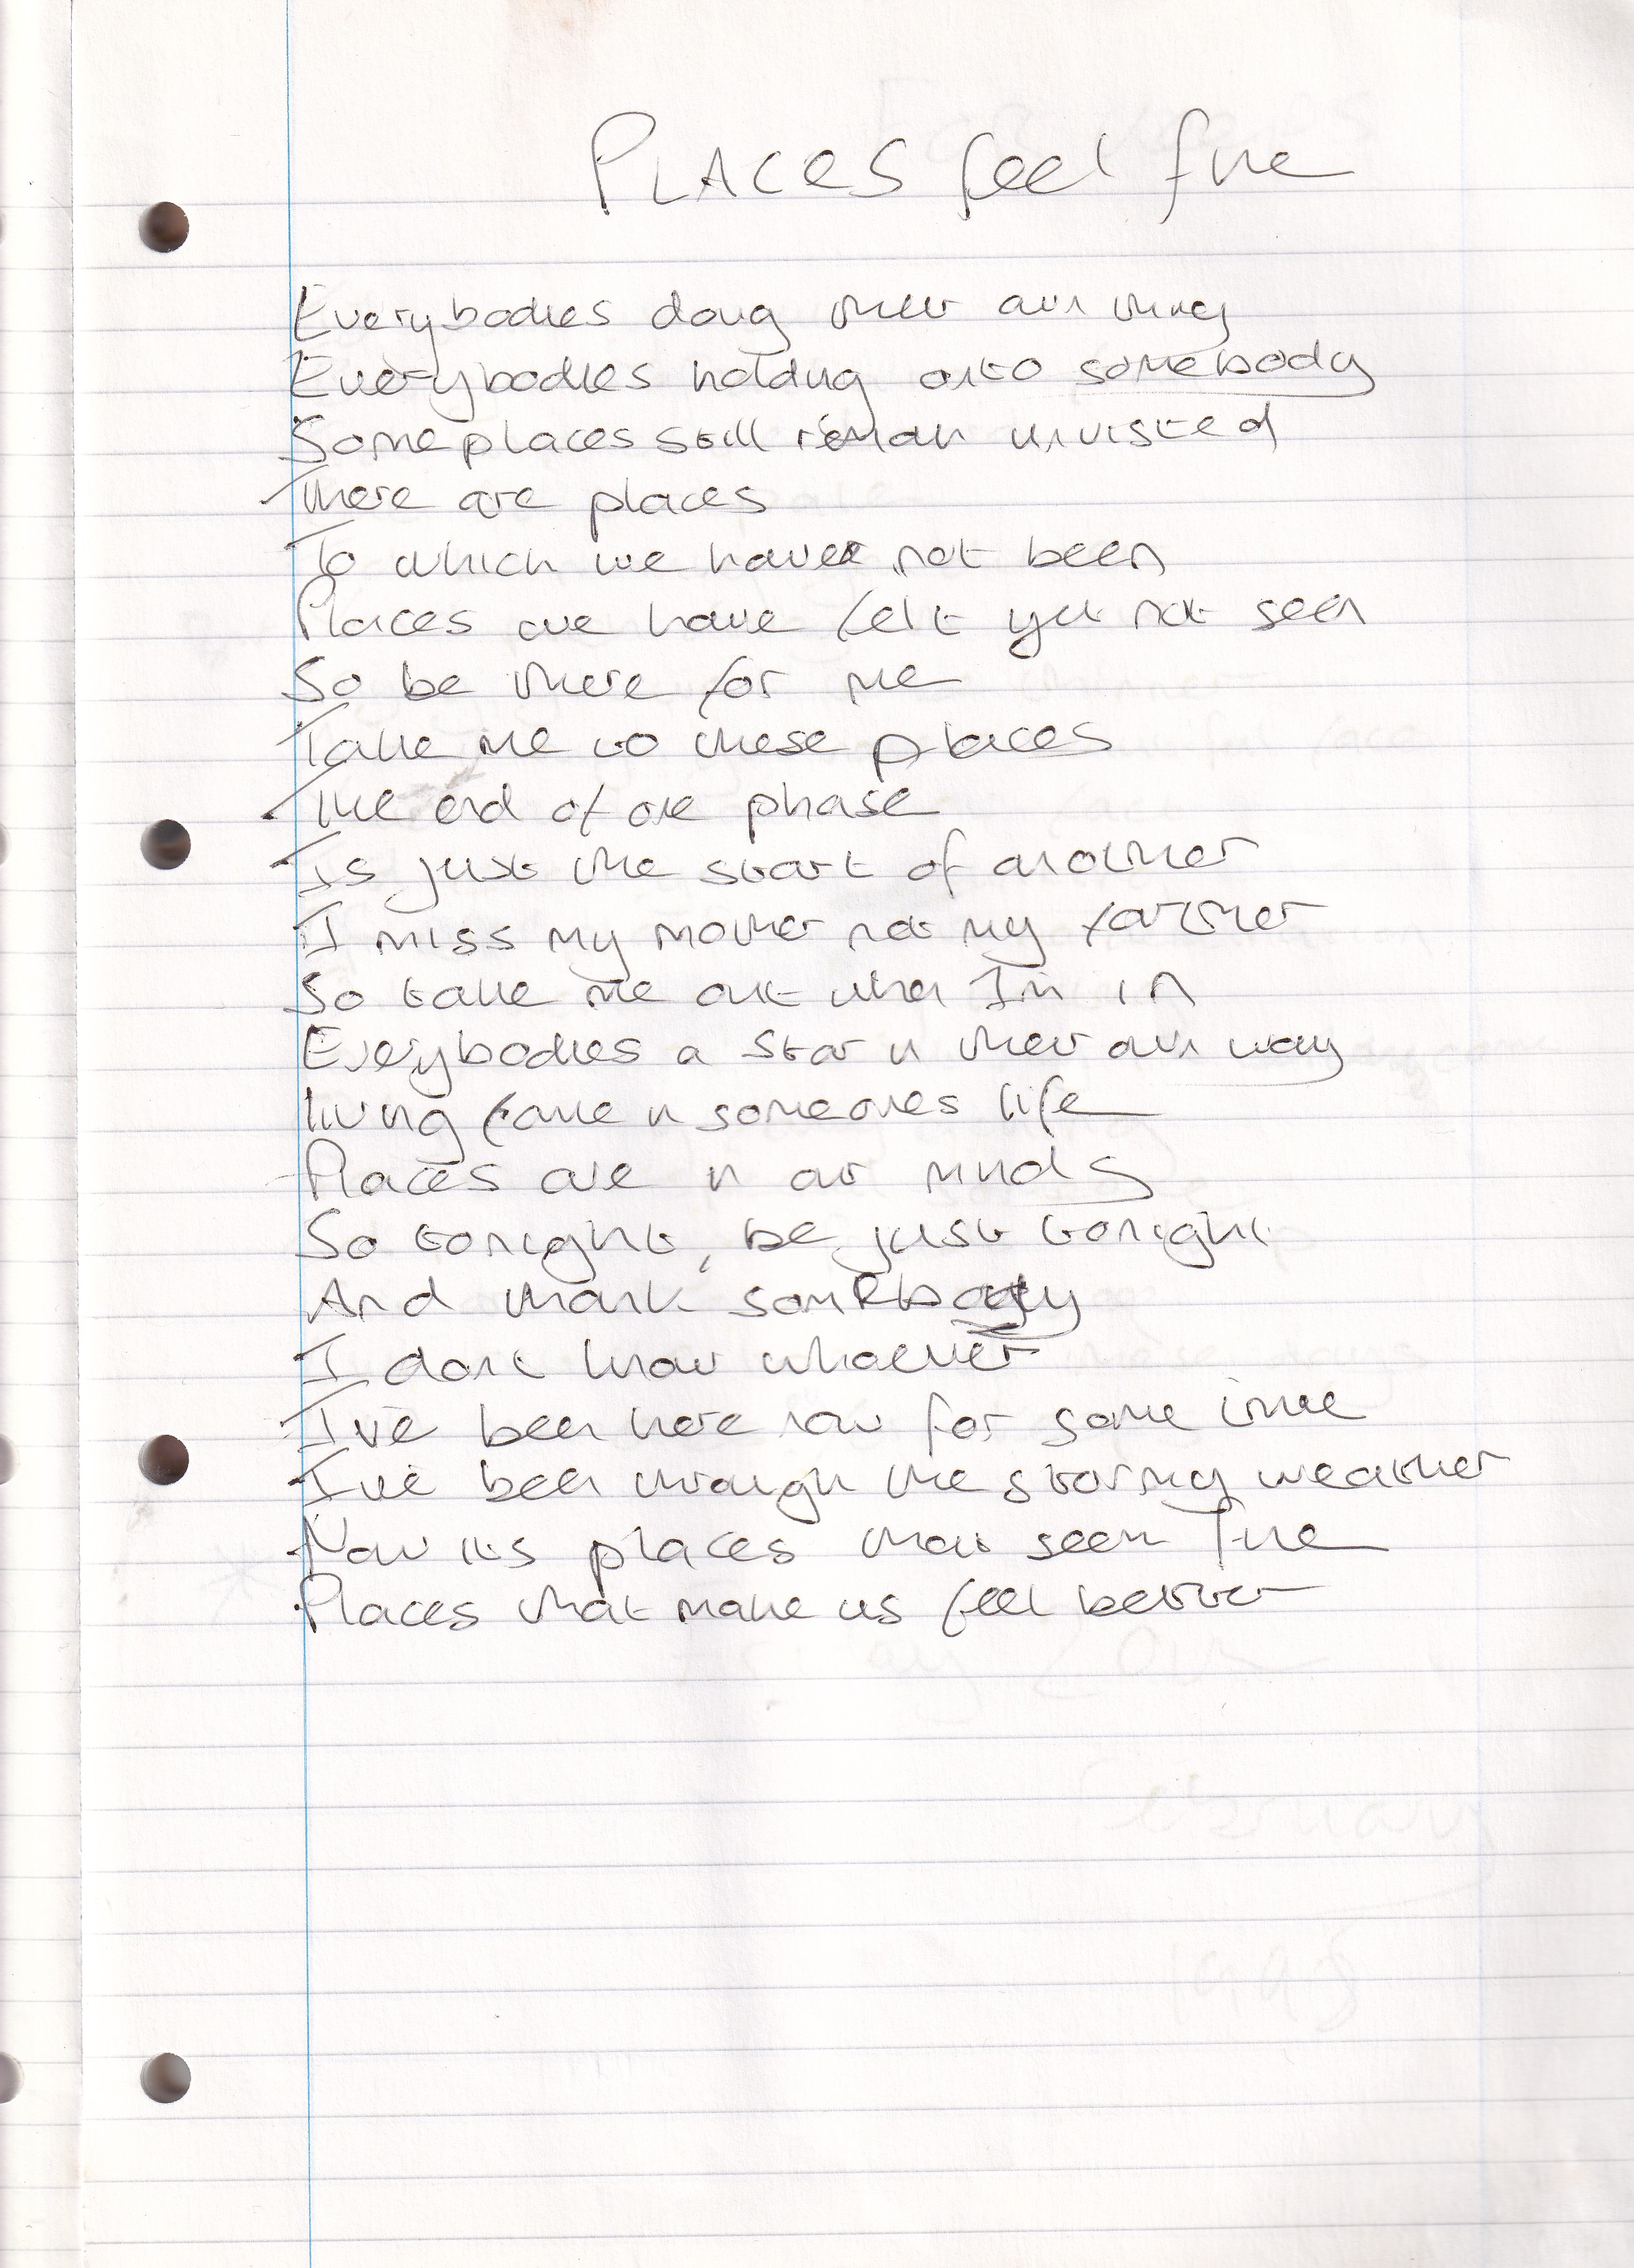 PLACES feel fine
Everybodies doing their own thing
Everybodies holding onto somebody
Some places still remain unvisted
There are places
To which we have not been
Places we have felt yet not seen
So be there for me
Take me to these places
The end of one phase
Is just the start of another
I miss my mother not my farther
So take me out when Im in
Everybodies a star in their own way
living fame in someones life
Places are in our minds
So tonight, be just tonight
And thank somebody
I dont know whoever
I've been here now for some time
I've been through the stormy weather
Now its places that seem fine
Places that make us feel better